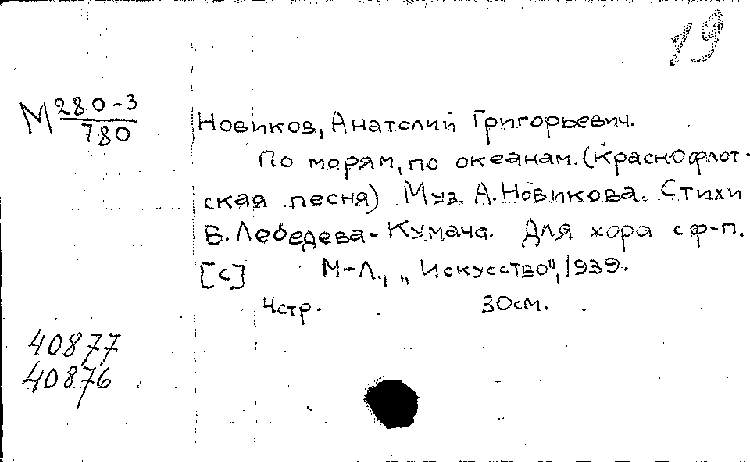 19
М 280-3
780
Новиков, Анатолий Григорьевич.
По морям, по океанам. (Краснофлот-
ская песня) Муз. А. Новикова. Стихи
В. Лебедева-Кумача. Для хора с ф-п.
[с] М-Л., „Искусство", 1939.
4стр. 30см.
40877
40876